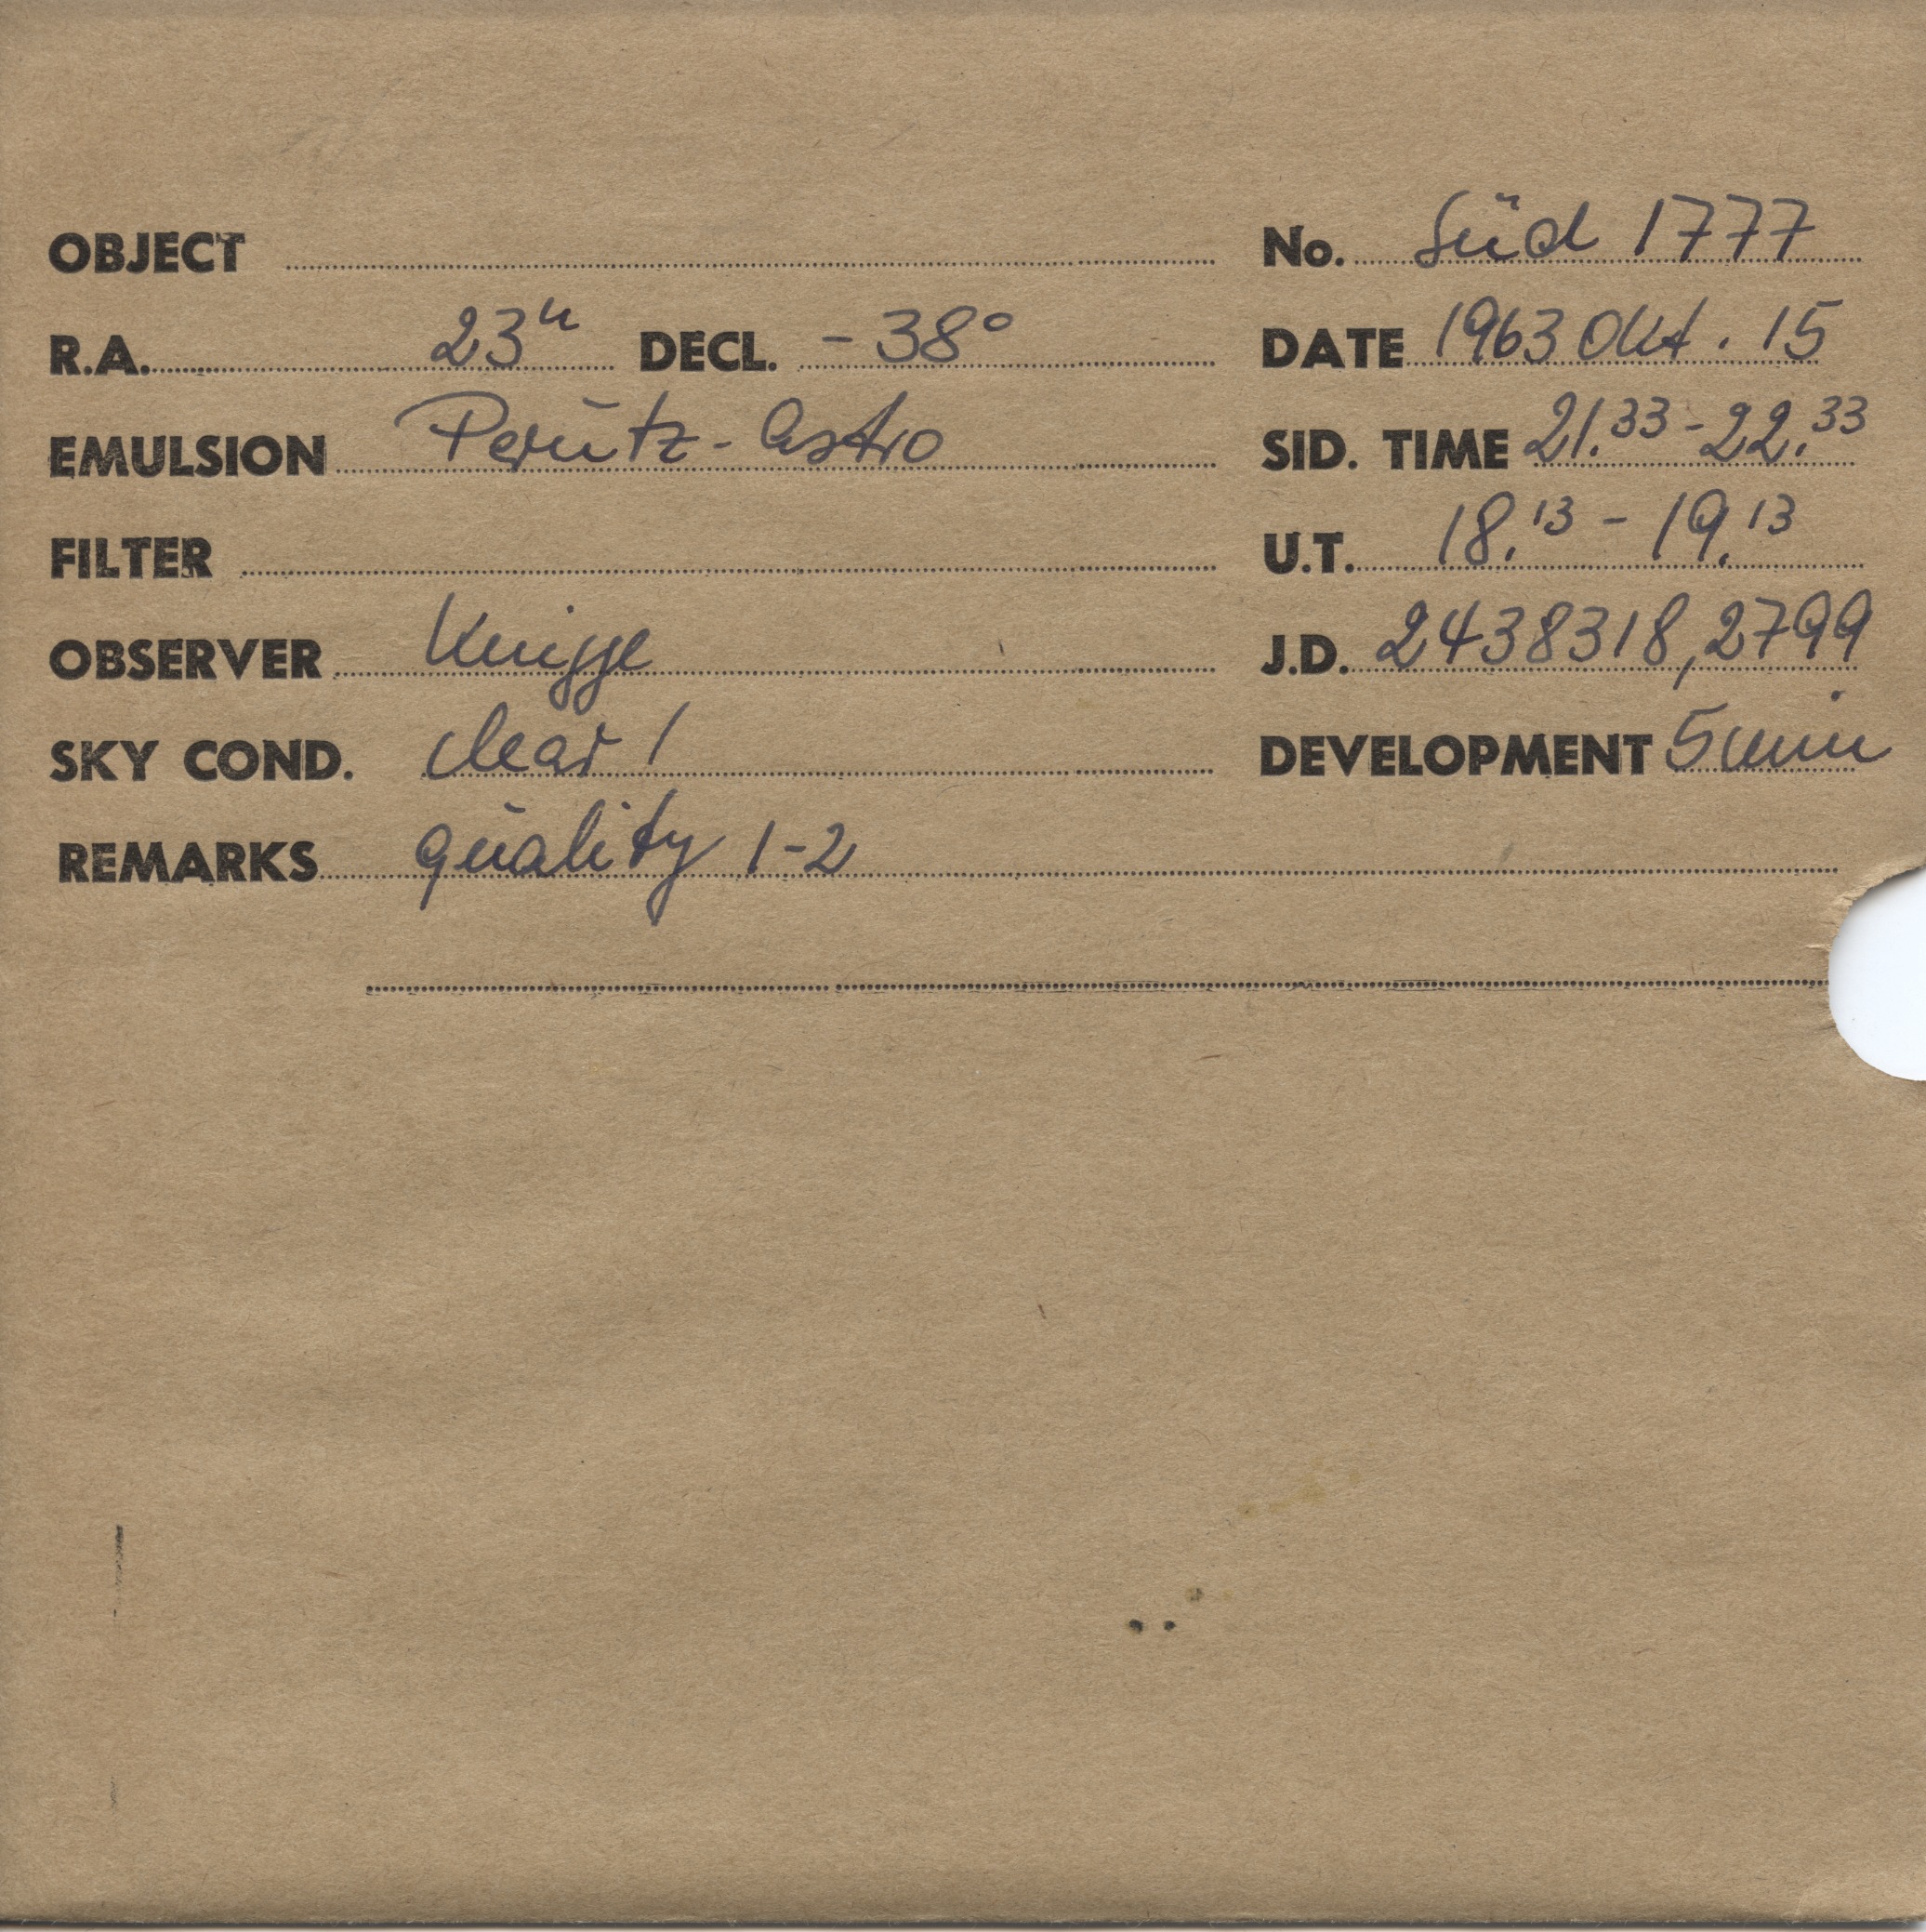 OBJECT No. Süd 1777
R.A. 23h DECL. -38° DATE 1963 Okt. 15
EMULSION Perutz-Astro SID. TIME 21.33-22.33
FILTER U.T. 18.13-19.13
OBSERVER Knigge J.D. 2438318,2799
SKY COND. clear 1 DEVELOPMENT 5 min
REMARKS quality 1-2